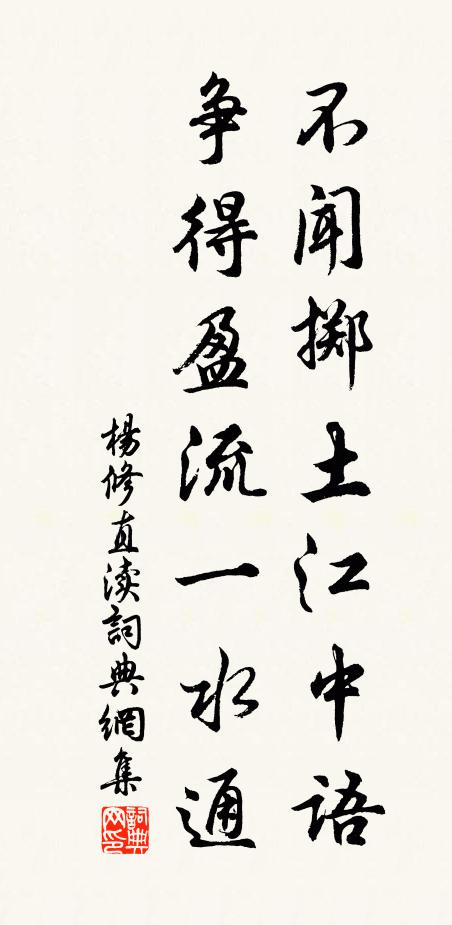 不闻掷土江中语
争得盈流一水通
楊修直渎詞典網集
詞典
网印